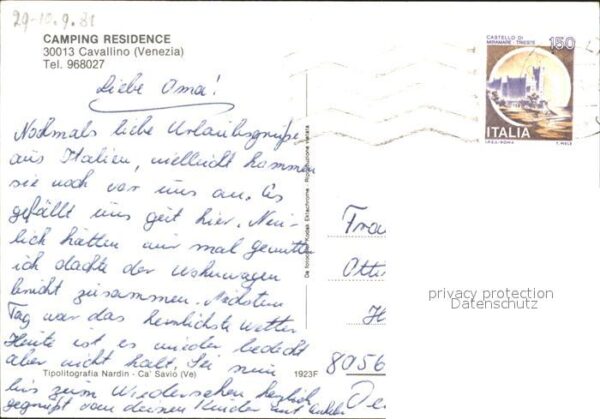 29-10.9.81
CAMPING RESIDENCE
30013 Cavallino (Venezia)
Tel. 968027
CASTELLO DI
MIRAMARE - TRIESTE
150
ITALIA
I.P.Z.S. ROMA
T. MELE
Liebe Oma!
Nochmals liebe Urlaubsgrüße
aus Italien, vielleicht kommen
sie noch vor uns an. Es
gefällt uns gut hier. Neu-
lich hatten wir mal Gewitter
ich dachte der Wohnwagen
bricht zusammen. Nächsten
Tag war das herrlichste Wetter
Heute ist es wieder bedeckt
aber nicht kalt. Sei nun
bis zum Wiedersehen herzlich
gegrüßt von deinen Kinder und
Tipolitografia Nardin - Ca' Savio (Ve)
1923F
Da fotocolor Kodak Ektachrome - Riproduzione vietata
Fra
Ottu
H
8056
De
privacy protection
Datenschutz